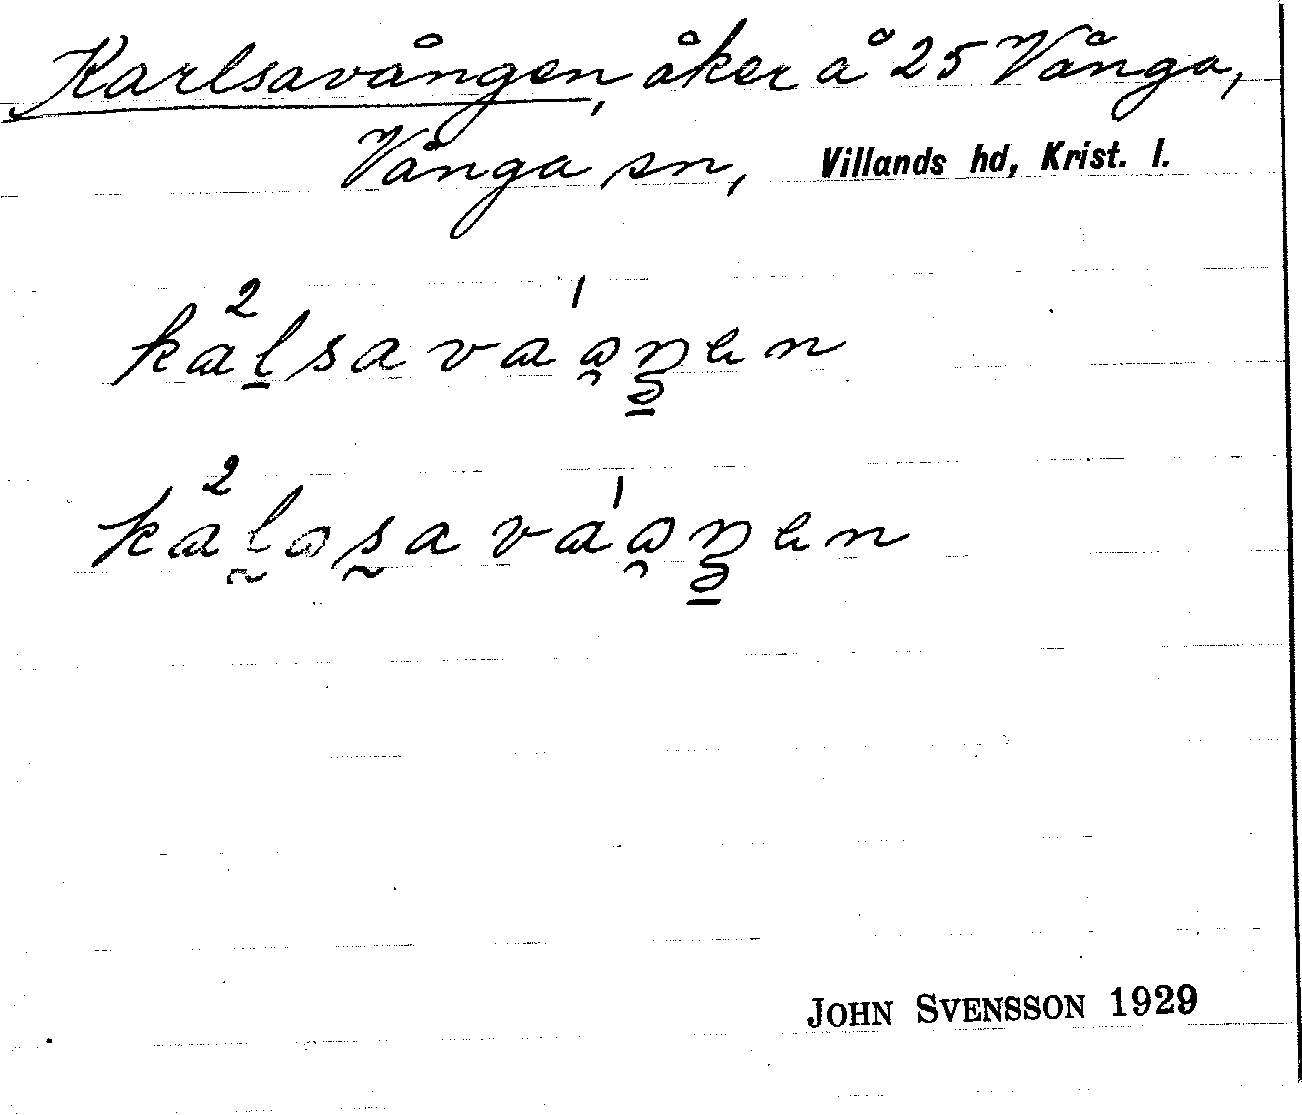 Karlsavången, åker å 25 Vånga,
Vånga sn, Villands hd, Krist. l.
JOHN SVENSSON 1929